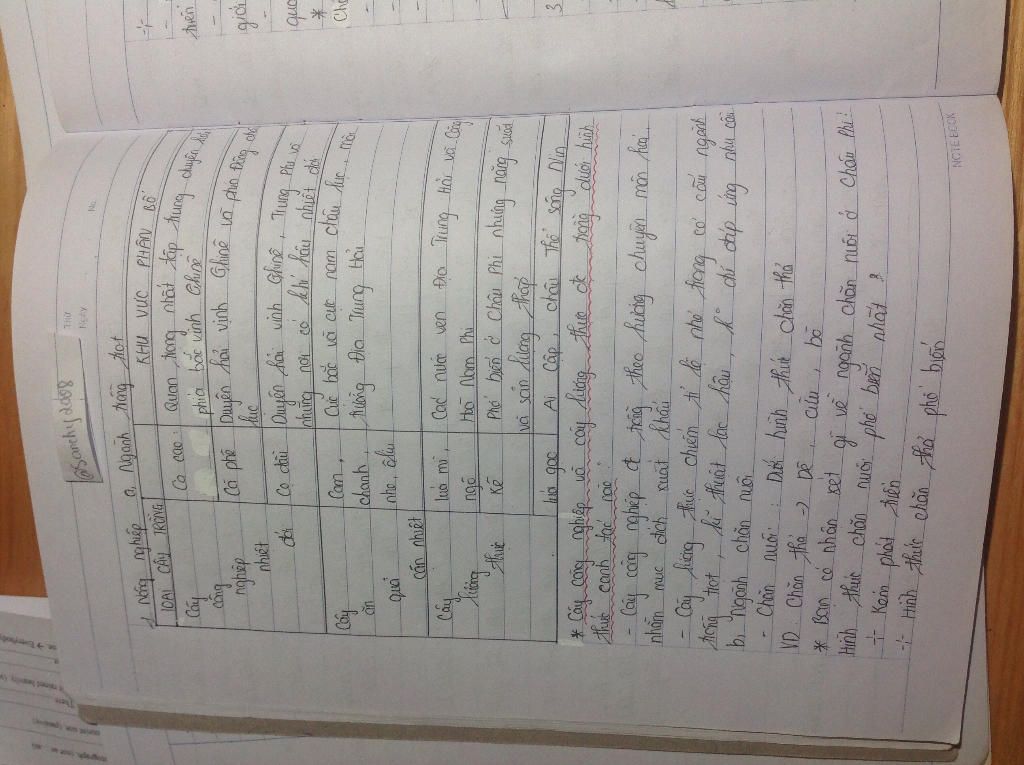 @Sanchy2008
Thứ
Ngày
No.
1, Nông nghiệp a, Ngành trồng trọt
LOẠI CÂY TRỒNG
KHU VỰC PHÂN BỐ
Cây
công
nghiệp
nhiệt
đới
Ca cao
Quan trọng nhất tập trung duyên hải
phía bắc vịnh Ghinê
Cà phê
Duyên hải vịnh Ghinê và phía Đông châu
lục
Cọ dầu
Duyên hải vịnh Ghinê, Trung Phi và
những nơi có khí hậu nhiệt đới
Cây
ăn
quả
cận nhiệt
Cam,
chanh,
nho, ôliu
Cực bắc và cực nam châu lục, môi
trường Địa Trung Hải
Cây
lương
thực
lúa mì,
ngô
Các nước ven Địa Trung Hải và Cộng
Hoà Nam Phi
Kê
Phổ biến ở Châu Phi nhưng năng suất
và sản lượng thấp
lúa gạo
Ai Cập, châu thổ sông Nin
* Cây công nghiệp và cây lương thực đc trồng dưới hình
thức canh tác nào:
- Cây công nghiệp đc trồng theo hướng chuyên môn hoá,
nhằm mục đích xuất khẩu
- Cây lương thực chiếm tỉ lệ nhỏ trong cơ cấu ngành
trồng trọt, kỹ thuật lạc hậu, chỉ đáp ứng nhu cầu
b. Ngành chăn nuôi
- Chăn nuôi: Dưới hình thức chăn thả
VD: Chăn thả → Dê, cừu, bò
* Bạn có nhận xét gì về ngành chăn nuôi ở Châu Phi?
Hình thức chăn nuôi phổ biến nhất?
+ Kém phát triển
+ Hình thức chăn thả phổ biến
NOTEBOOK